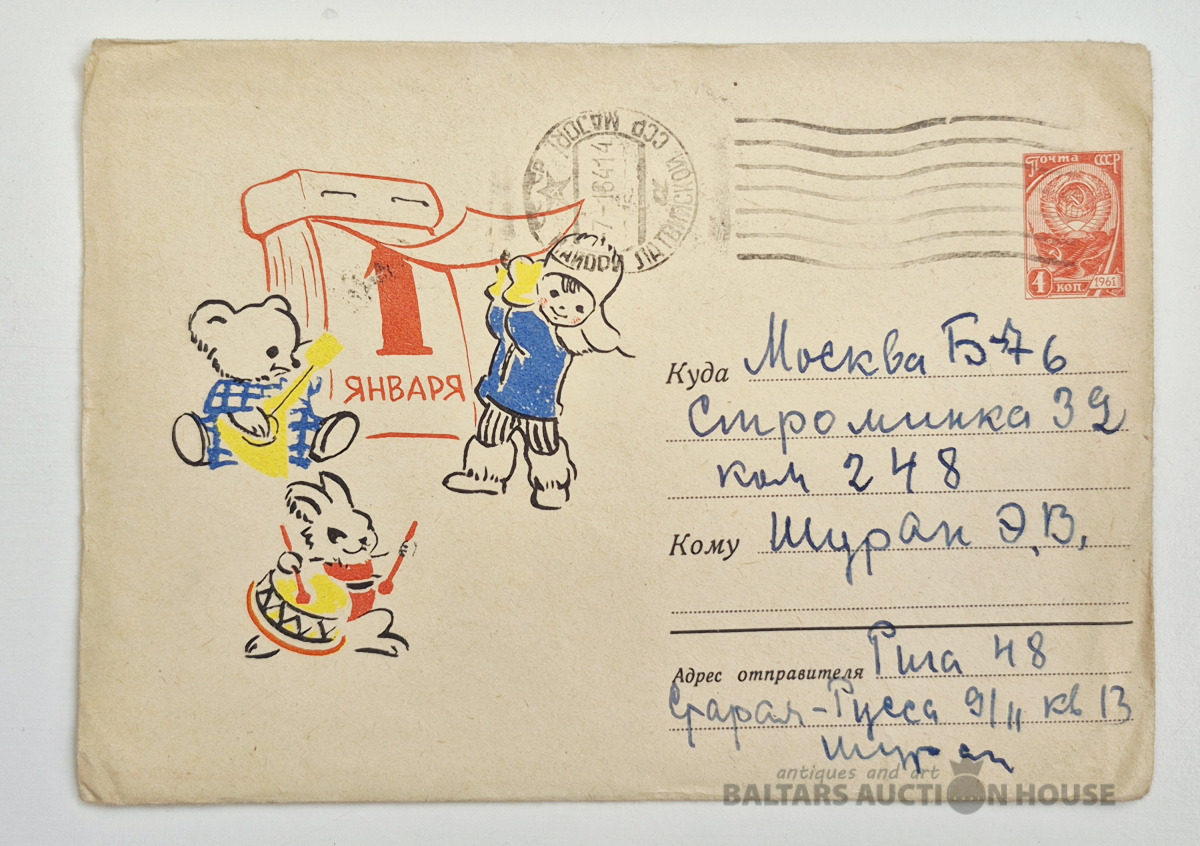 Почта СССР
4 коп. 1961
1
ЯНВАРЯ
ЛАТВИЙСКОЙ ССР MAJORI
Куда Москва Б-76
Строминка 32
ком 248
Кому Шуран Э.В.
Адрес отправителя Рига 48
Старая-Русса 9/11 кв 13
Шуран
antiques and art
BALTARS AUCTION HOUSE